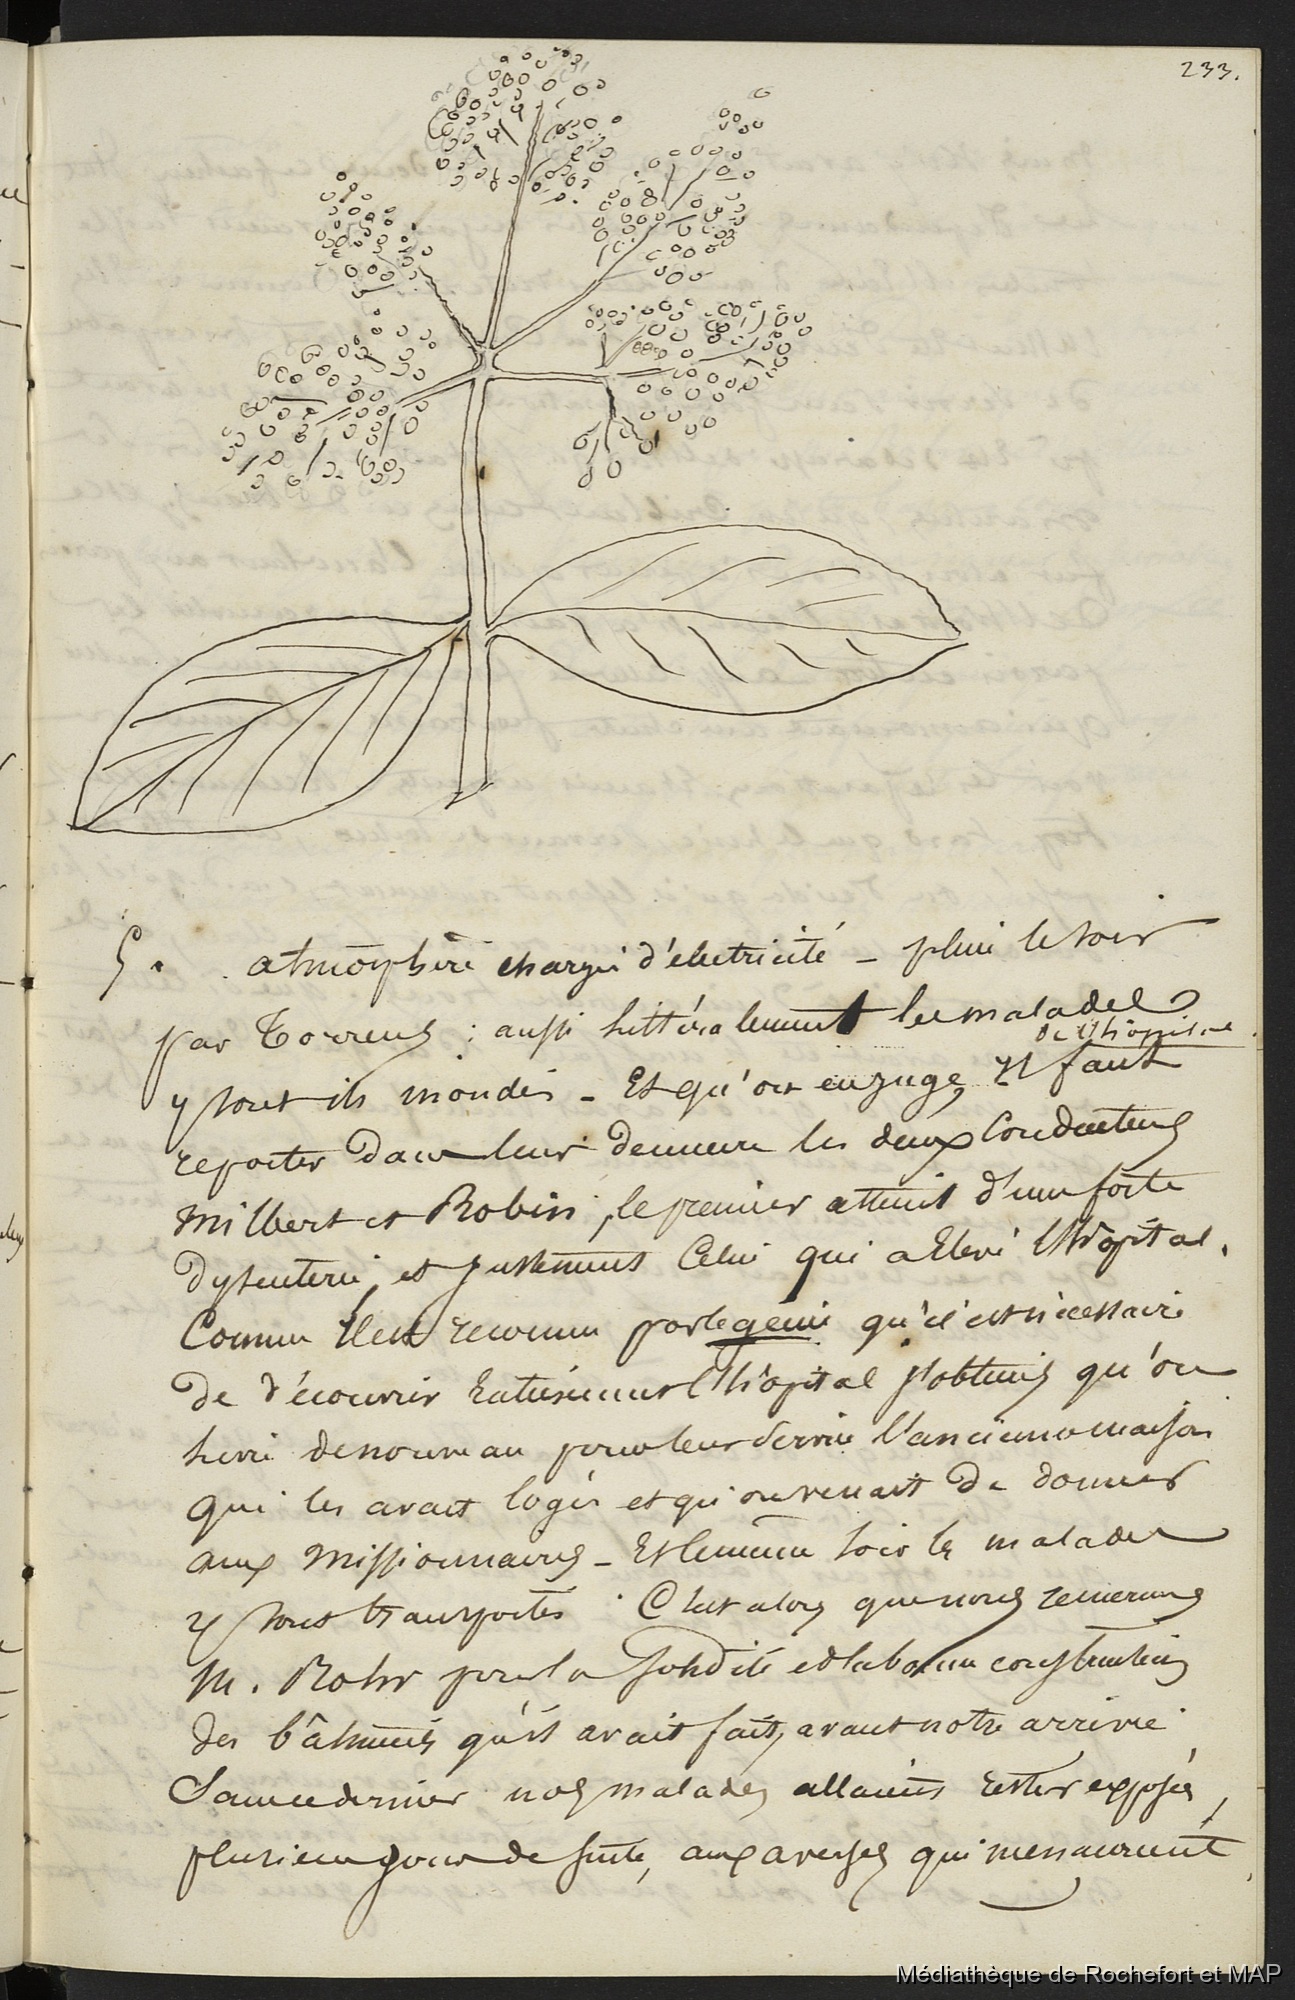 233.
5. atmosphère chargée d'électricité _ pluie le soir
par Torrens : aussi littéralement les malades
de l'hôpital
y sont ils inondés _ Et qu'on en juge, Il faut
reporter dans leur demeure les deux Conducteurs
Milbert et Robin, le premier atteint d'une forte
dysenterie, et justement Celui qui a Elevé l'hôpital.
Comme Il est reconnu par le génie qu'il est nécessaire
de découvrir Entièrement l'hôpital j'obtiens qu'on
livre de nouveau pour leur Service l'ancienne maison
qui les avait logés et qu'on venait de donner
aux Missionnaires _ Et le même soir les malades
y sont transportés. C'est alors que nous
M. Rohr pour la solidité et la bonne construction
des bâtiments qu'il avait fait, avant notre arrivée.
Sans ce dernier nos malades allaient rester exposés,
plusieurs jours de suite, aux averses qui menaçaient
Médiathèque de Rochefort et MAP